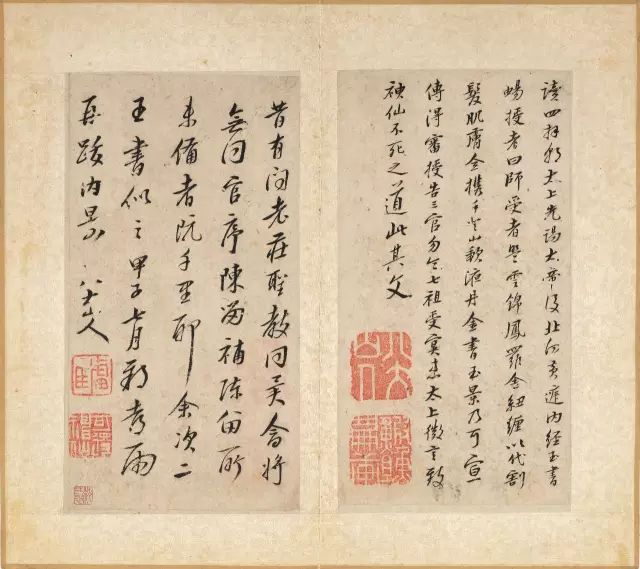 讀四拜朝太上先謁太帝後北向黃庭內經玉書
暢授者曰師受者盟雲錦鳳羅金紐纏以代割
髮肌膚全攜手登山歃液丹金書玉景乃可宣
傳得審授告三官勿令七祖受冥患太上微言致
神仙不死之道此其文
昔有問老莊聖教同異會將
無同官序陳留補陳留所
未備者阮千里耶余次二
王書似之甲子七月新雨
再跋內景 八大山人